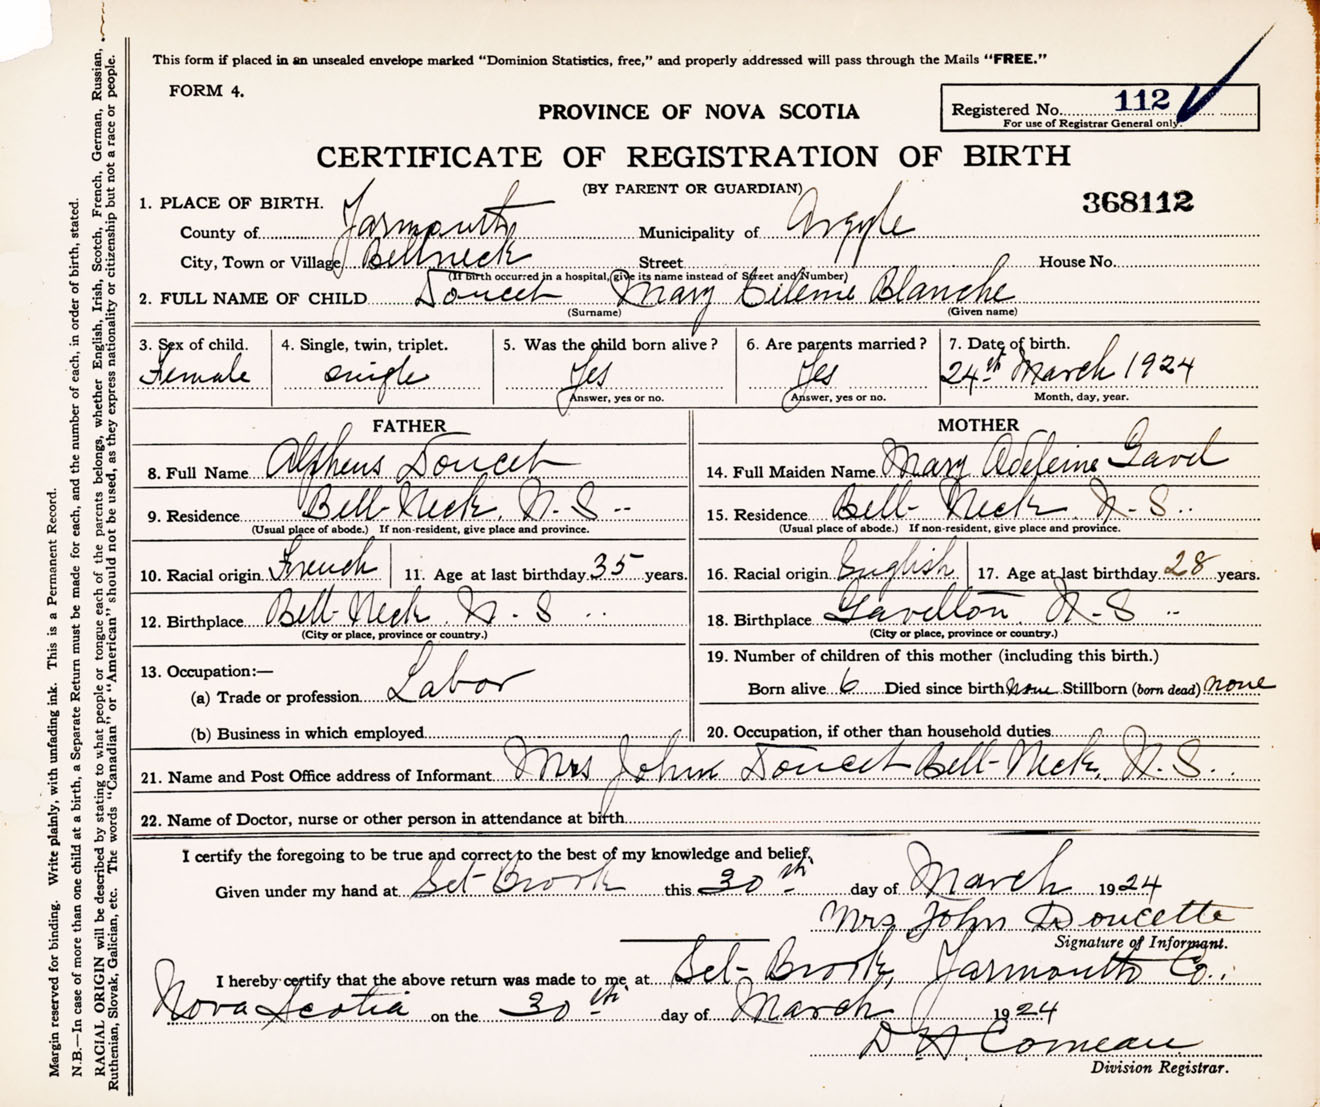 This form if placed in an unsealed envelope marked "Dominion Statistics, free," and properly addressed will pass through the Mails "FREE."
FORM 4.
PROVINCE OF NOVA SCOTIA
Registered No. 112
For use of Registrar General only.
CERTIFICATE OF REGISTRATION OF BIRTH
(BY PARENT OR GUARDIAN)
368112
1. PLACE OF BIRTH.
County of Yarmouth Municipality of Argyle
City, Town or Village Bellneck Street House No.
(If birth occurred in a hospital, give its name instead of Street and Number)
2. FULL NAME OF CHILD Doucet Mary Blanche
(Surname) (Given name)
3. Sex of child. 4. Single, twin, triplet. 5. Was the child born alive? 6. Are parents married? 7. Date of birth.
Female single Yes Yes 24th March 1924
Answer, yes or no. Answer, yes or no. Month, day, year.
FATHER MOTHER
8. Full Name Alpheus Doucet 14. Full Maiden Name Mary Adeleine Gavel
9. Residence Bell-Neck, N.S -- 15. Residence Bell-Neck N-S..
(Usual place of abode.) If non-resident, give place and province. (Usual place of abode.) If non-resident, give place and province.
10. Racial origin French 11. Age at last birthday 35 years. 16. Racial origin English 17. Age at last birthday 28 years.
12. Birthplace Bell-Neck N-S 18. Birthplace Gavelton N-S --
(City or place, province or country.) (City or place, province or country.)
13. Occupation:— 19. Number of children of this mother (including this birth.)
(a) Trade or profession Labor Born alive 6 Died since birth none Stillborn (born dead) none
(b) Business in which employed 20. Occupation, if other than household duties
21. Name and Post Office address of Informant Mrs John Doucet Bell-Neck, N.S.
22. Name of Doctor, nurse or other person in attendance at birth
I certify the foregoing to be true and correct to the best of my knowledge and belief.
Given under my hand at Sel-Brook this 30th day of March 1924
Mrs John Doucette
Signature of Informant.
I hereby certify that the above return was made to me at Sel-Brook, Yarmouth Co.,
Nova Scotia on the 30th day of March 1924
D H Comeau
Division Registrar.
Margin reserved for binding. Write plainly, with unfading ink. This is a Permanent Record.
N.B.—In case of more than one child at a birth, a Separate Return must be made for each, and the number of each, in order of birth, stated.
RACIAL ORIGIN will be described by stating to what people or tongue each of the parents belongs, whether English, Irish, Scotch, French, German, Russian,
Ruthenian, Slovak, Galician, etc. The words "Canadian" or "American" should not be used, as they express nationality or citizenship but not a race or people.